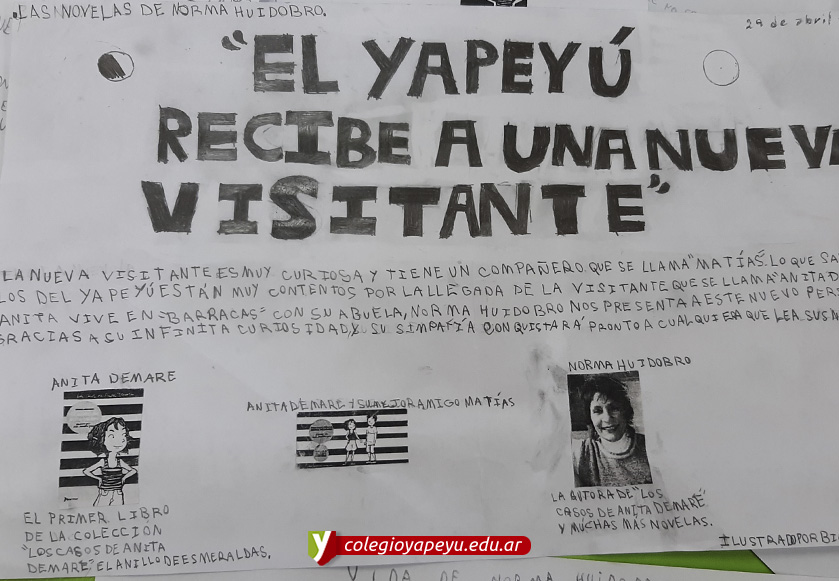 LAS NOVELAS DE NORMA HUIDOBRO.
29 de abril
"EL YAPEYÚ
RECIBE A UNA NUEV
VISITANTE"
LA NUEVA VISITANTE ES MUY CURIOSA Y TIENE UN COMPAÑERO QUE SE LLAMA "MATÍAS". LO QUE SA
LOS DEL YAPEYÚ ESTÁN MUY CONTENTOS POR LA LLEGADA DE LA VISITANTE QUE SE LLAMA "ANITA D
ANITA VIVE EN "BARRACAS" CON SU ABUELA, NORMA HUIDOBRO NOS PRESENTA A ESTE NUEVO PER
GRACIAS A SU INFINITA CURIOSIDAD, Y SU SIMPATÍA CONQUISTARÁ PRONTO A CUALQUIERA QUE LEA SUS N
ANITA DEMARE
ANITA DEMARE Y SU MEJOR AMIGO MATÍAS
NORMA HUIDOBRO
EL PRIMER LIBRO
DE LA COLECCIÓN
"LOS CASOS DE ANITA
DEMARE" EL ANILLO DE ESMERALDAS.
LA AUTORA DE "LOS
CASOS DE ANITA DEMARÉ"
Y MUCHAS MÁS NOVELAS.
ILUSTRADO POR BI
y colegioyapeyu.edu.ar
VIDA DE NORMA HUIDOB